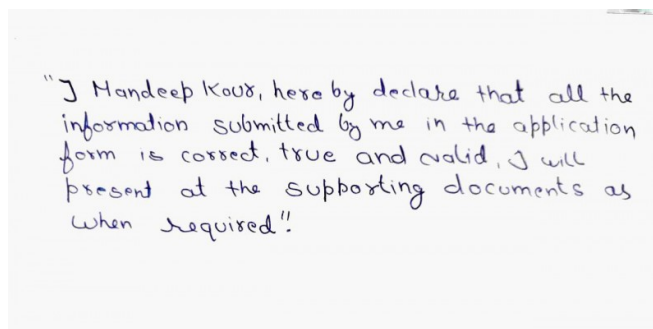 "I Mandeep Kour, here by declare that all the
information submitted by me in the application
form is correct, true and valid, I will
present at the supporting documents as
when required".